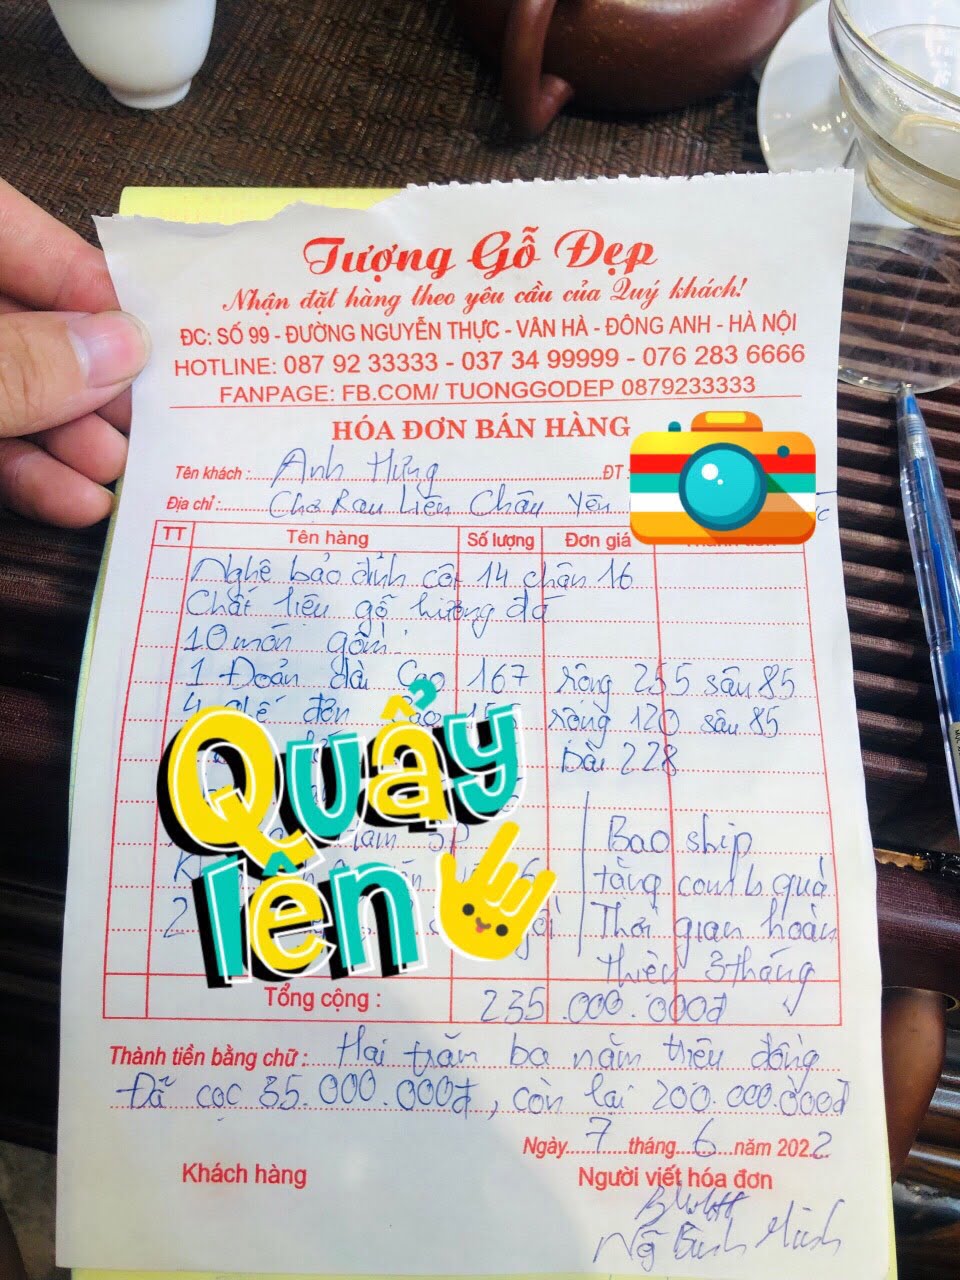 Tượng Gỗ Đẹp
Nhận đặt hàng theo yêu cầu của Quý khách!
ĐC: SỐ 99 - ĐƯỜNG NGUYỄN THỰC - VÂN HÀ - ĐÔNG ANH - HÀ NỘI
HOTLINE: 087 92 33333 - 037 34 99999 - 076 283 6666
FANPAGE: FB.COM/ TUONGGODEP 0879233333
HÓA ĐƠN BÁN HÀNG
Tên khách : Anh Hưng ĐT :
Địa chỉ : Chợ Rau Liên Châu Yên
TT Tên hàng Số lượng Đơn giá
Nghê bảo đỉnh cột 14 chân 16
Chất liệu gỗ hương đá
10 món gồm :
1 Đoản dài Cao 167 rộng 255 sâu 85
4 ghế đơn rộng 120 sâu 85
Dài 228
Quẩy
lên
SP
Bao ship
tặng com b quà
2
Thời gian hoàn
thiện 3 tháng
Tổng cộng : 235.000.000đ
Thành tiền bằng chữ : Hai trăm ba năm triệu đồng
Đã cọc 35.000.000đ, còn lại 200.000.000đ
Ngày 7 tháng 6 năm 2022
Khách hàng Người viết hóa đơn
Minh